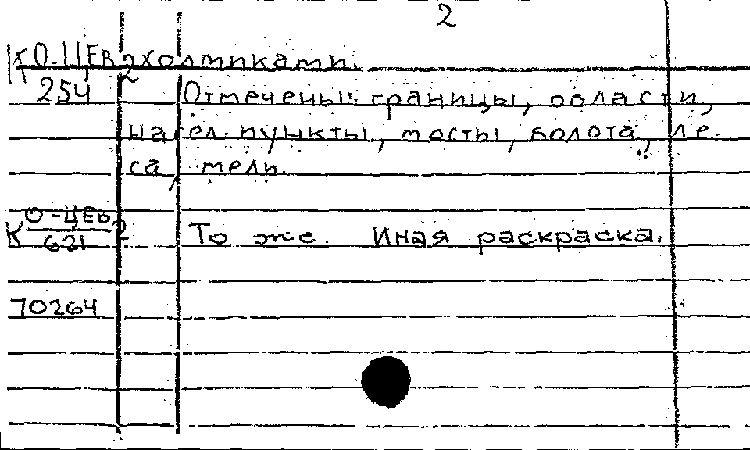 2
К О-ЦЕв 2 холмиками.
254 Отмечены: границы, области,
насел. пункты, мосты, болота, ле-
са, мели.
К О-ЦЕв 2
621 То же. Иная раскраска.
70264